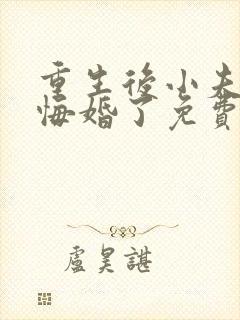 重生後小夫
悔婚了免費
盧昊諶